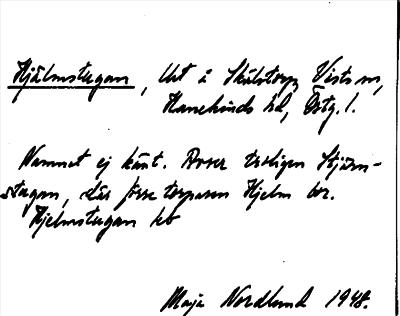 Hjälmstugan, Urt å Skälstorp Vists sn,
Hanekinds hd, Östg. l.
Namnet ej känt. Avser troligen Stjärn-
stugan, där förre torparen Hjelm bor.
Hjelmstugan kb
Maja Nordlund 1948.